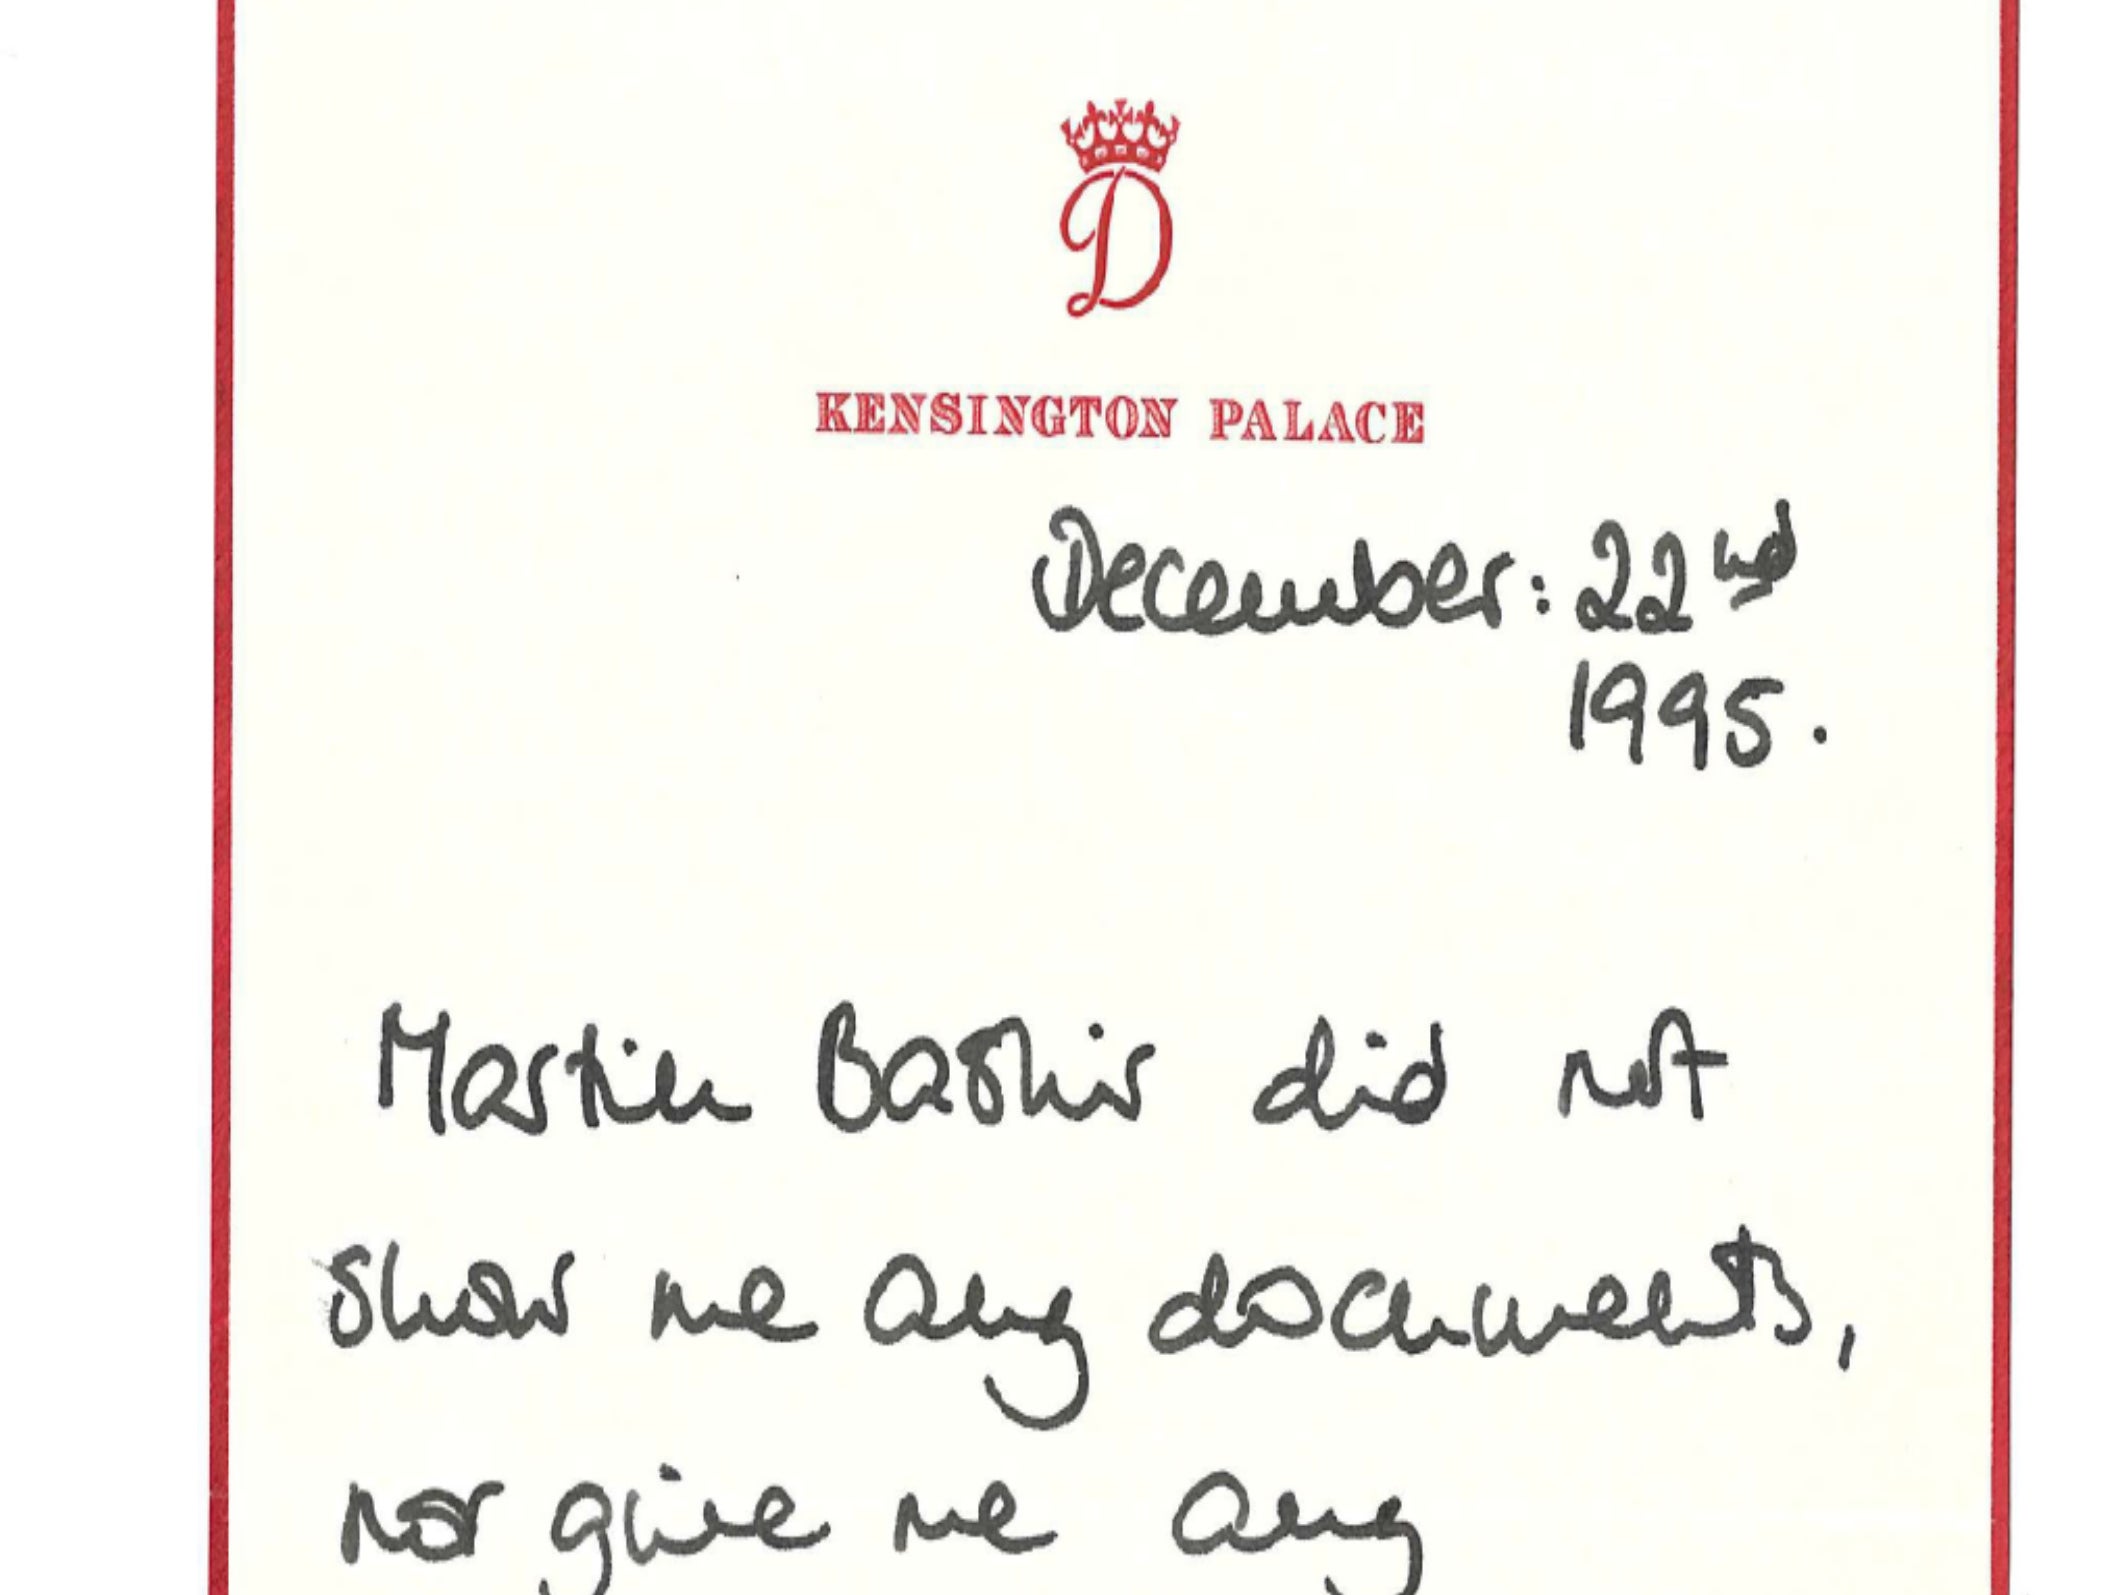 D
KENSINGTON PALACE
December: 22nd
1995.
Martin Bashir did not
show me any documents,
nor give me any